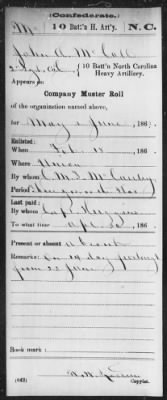 (Confederate.)
M 10 Batt'n H. Art'y. N. C.
John A. McCall
10 Batt'n North Carolina
Heavy Artillery.
Appears on
Company Muster Roll
of the organization named above,
for May & June, 186
Enlisted:
When Feb., 186
Where Union
By whom
Period
Last paid:
By whom Capt.
To what time Apl. 30, 186
Present or absent absent
Remarks: On 14 day furlough
from 23 June
Book mark:
(642) Copyist.